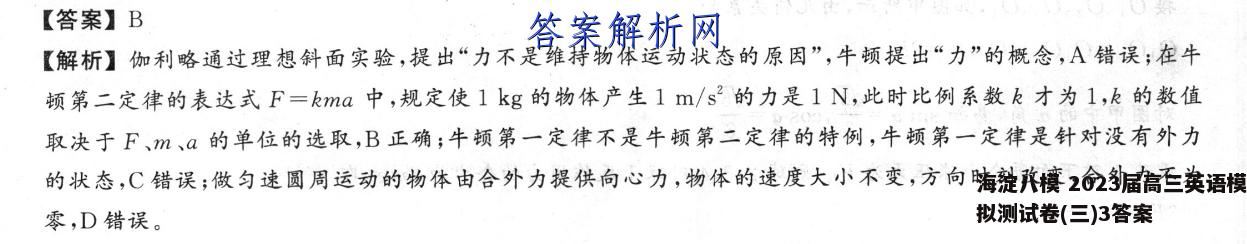 【答案】B
答案解析网
【解析】伽利略通过理想斜面实验,提出“力不是维持物体运动状态的原因”,牛顿提出“力”的概念,A错误;在牛
顿第二定律的表达式F=kma中,规定使1 kg的物体产生1 m/s²的力是1 N,此时比例系数k才为1,k的数值
取决于F、m、a的单位的选取,B正确;牛顿第一定律不是牛顿第二定律的特例,牛顿第一定律是针对没有外力
的状态,C错误;做匀速圆周运动的物体由合外力提供向心力,物体的速度大小不变,方向时刻改变,合外力不为
零,D错误。
海淀八模 2023届高三英语模
拟测试卷(三)3答案